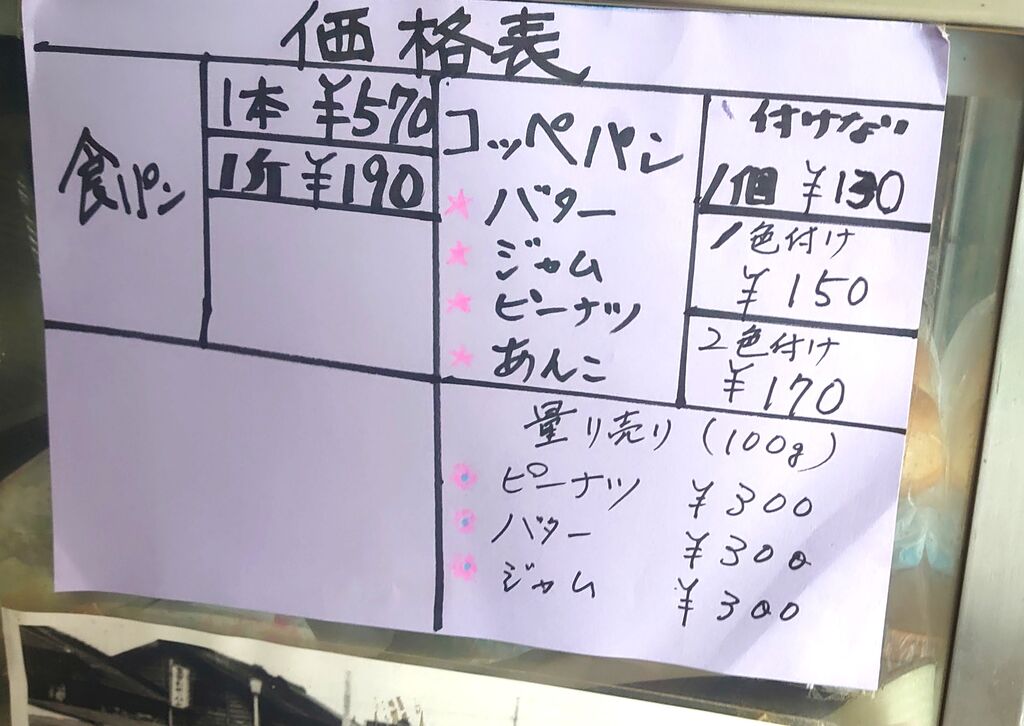 価格表
食パン
1本 ¥570
1斤 ¥190
コッペパン
バター
ジャム
ピーナツ
あんこ
付けない
1個 ¥130
1色付け
¥150
2色付け
¥170
量り売り (100g)
ピーナツ ¥300
バター ¥300
ジャム ¥300